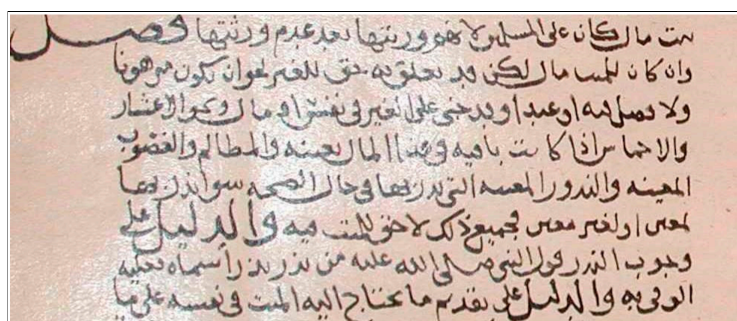 بيت مال كان على المسلمين لا هو ورثتها بعد عدم ورثتها فصل
وان كان للميت مال لكن قد تعلق به حق للغير نحو ان يكون مرهونا
ولا فصل فيه او عبدا وقد جنى على الغير في نفس او مال ونحو الاعشار
والاخماس اذا كانت باقيه وهذا المال بعينه والمظالم والغصوب
المعينه والنذور المعينه التي نذر بها في حال الصحه سوا نذر بها
لمعين او لغير معين فجميع ذلك لا حق للميت فيه والدليل على
وجوب النذر قول النبي صلى الله عليه من نذر نذرا سماه فعليه
الوفى به والدليل على تقديم ما يحتاج اليه الميت في نفسه على ما